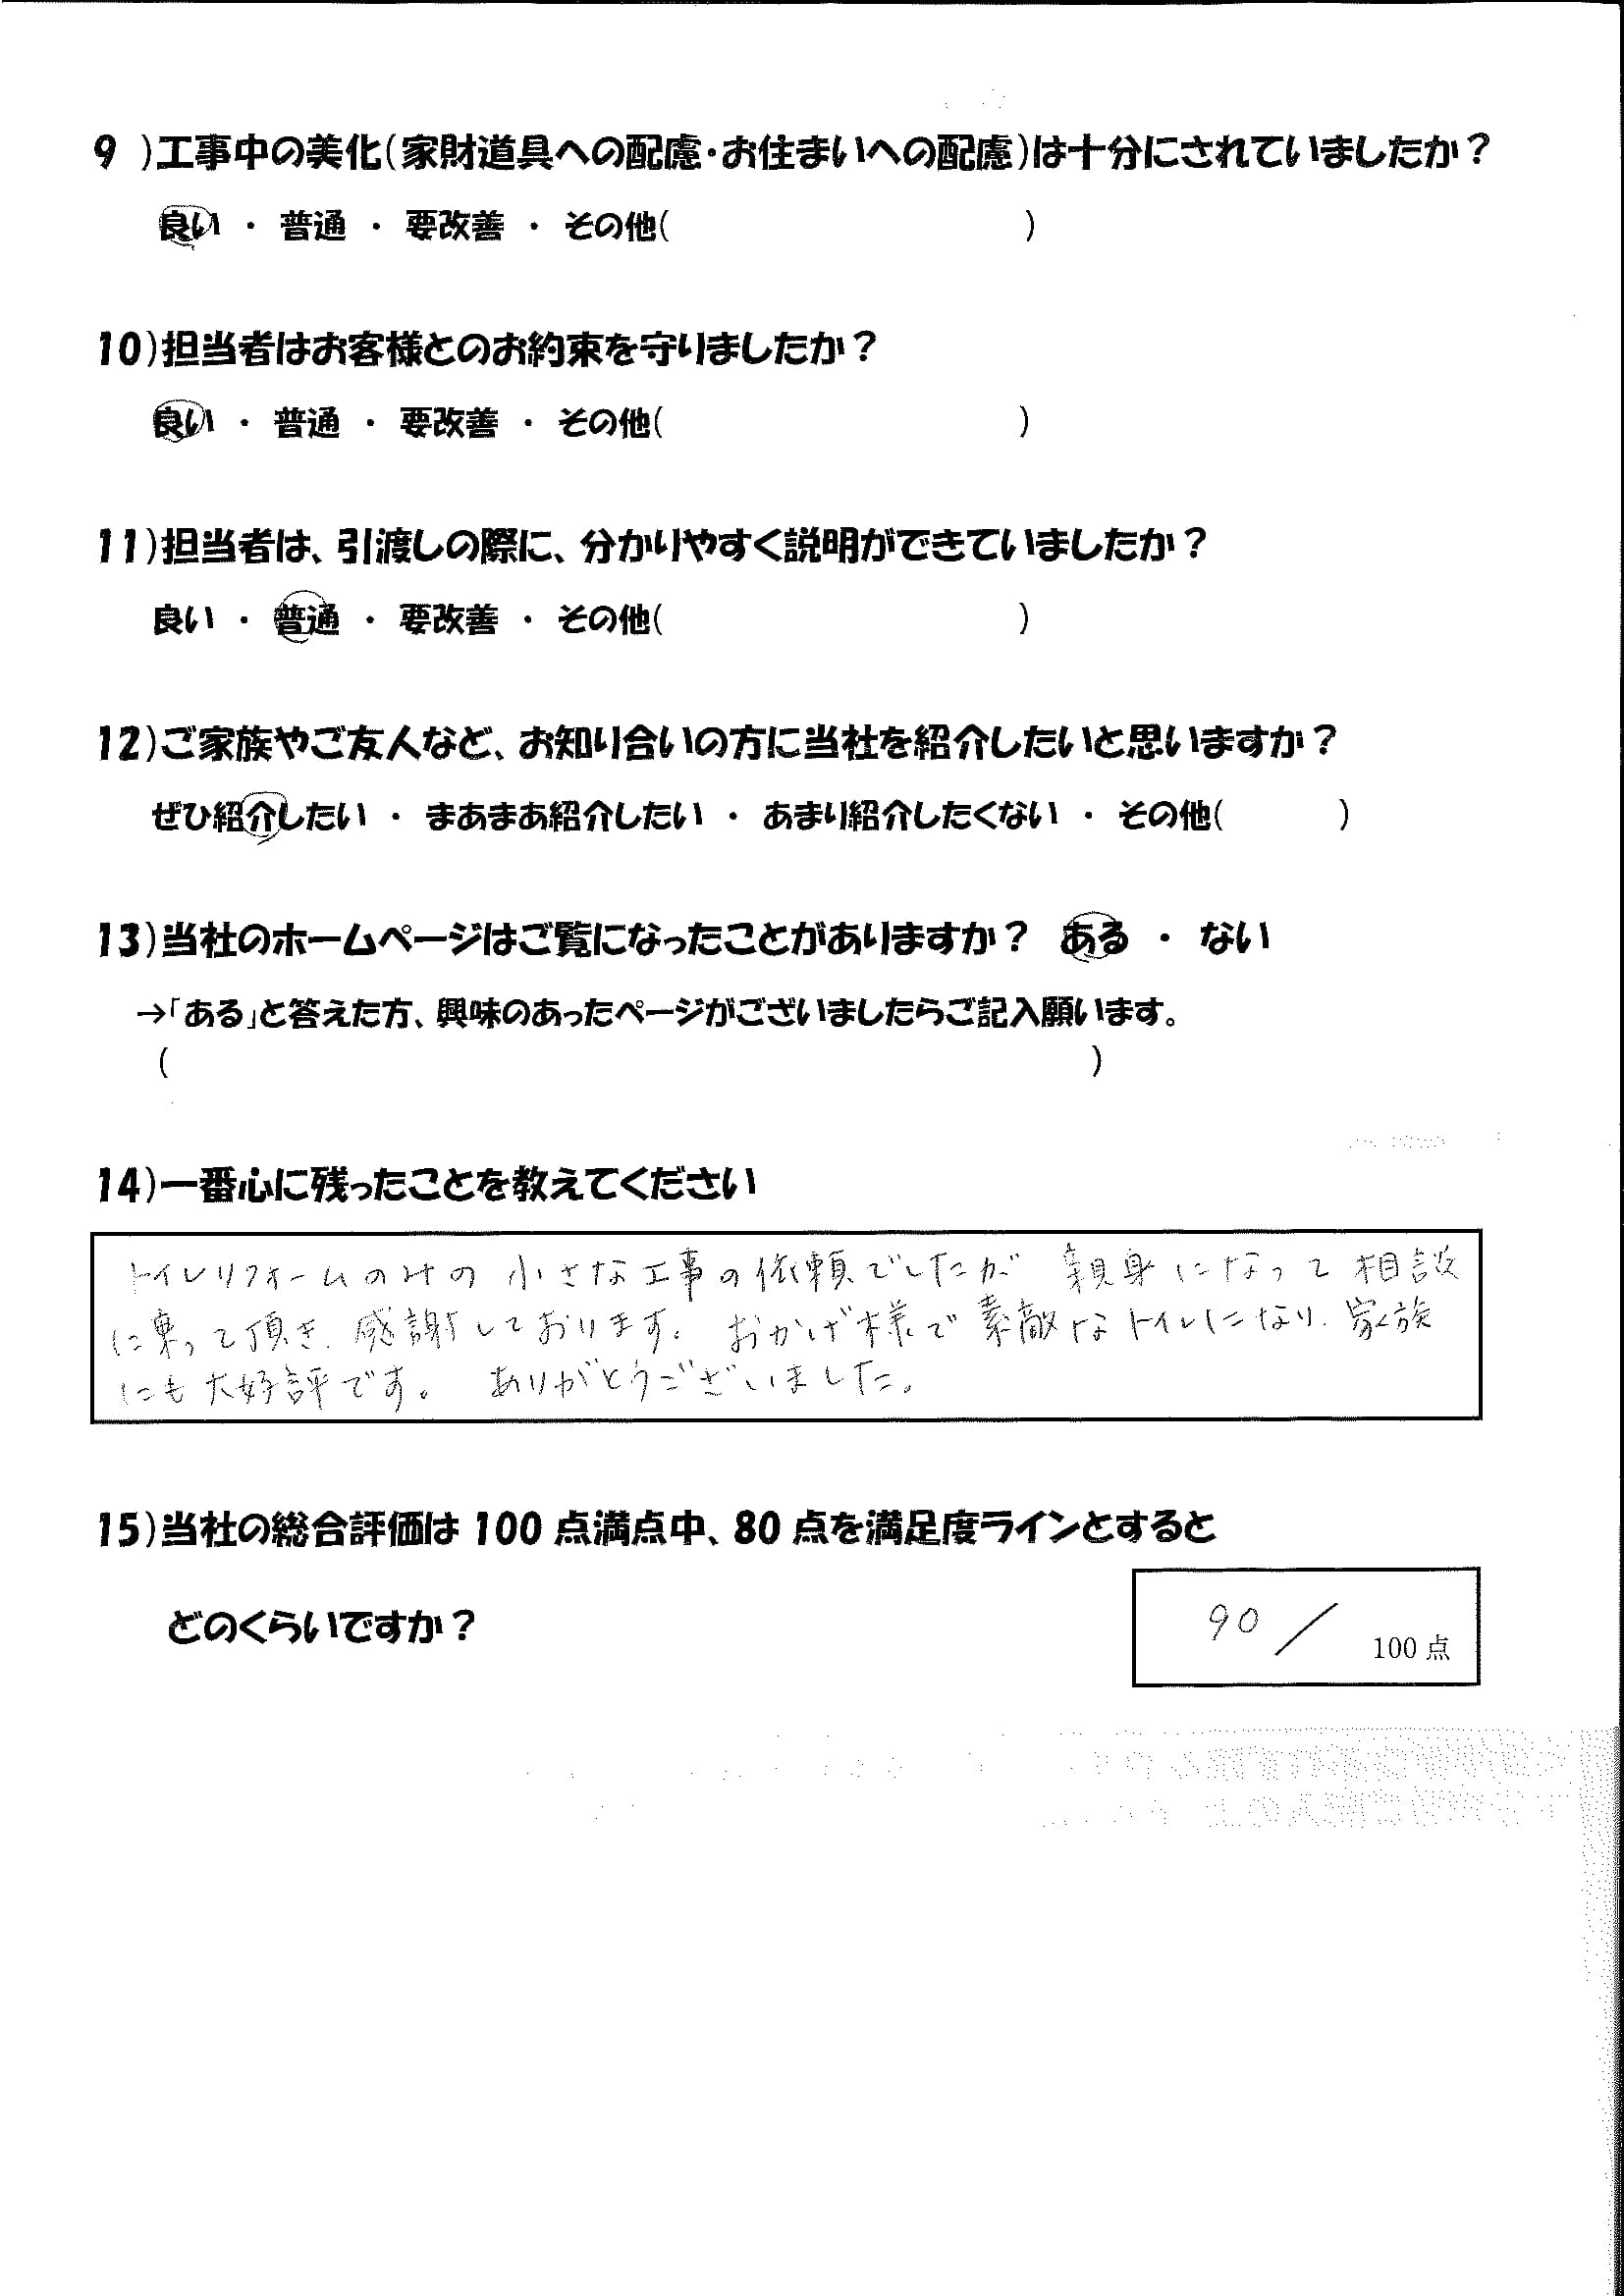 9 )工事中の美化(家財道具への配慮・お住まいへの配慮)は十分にされていましたか?
良い ・ 普通 ・ 要改善 ・ その他( )
10)担当者はお客様とのお約束を守りましたか?
良い ・ 普通 ・ 要改善 ・ その他( )
11)担当者は、引渡しの際に、分かりやすく説明ができていましたか?
良い ・ 普通 ・ 要改善 ・ その他( )
12)ご家族やご友人など、お知り合いの方に当社を紹介したいと思いますか?
ぜひ紹介したい ・ まあまあ紹介したい ・ あまり紹介したくない ・ その他( )
13)当社のホームページはご覧になったことがありますか? ある ・ ない
→「ある」と答えた方、興味のあったページがございましたらご記入願います。
( )
14)一番心に残ったことを教えてください
トイレリフォームのみの 小さな工事の依頼でしたが 親身になって相談
に乗って頂き、感謝しております。 おかげ様で素敵なトイレになり、家族
にも大好評です。 ありがとうございました。
15)当社の総合評価は 100 点満点中、80 点を満足度ラインとすると
どのくらいですか?
90 / 100 点